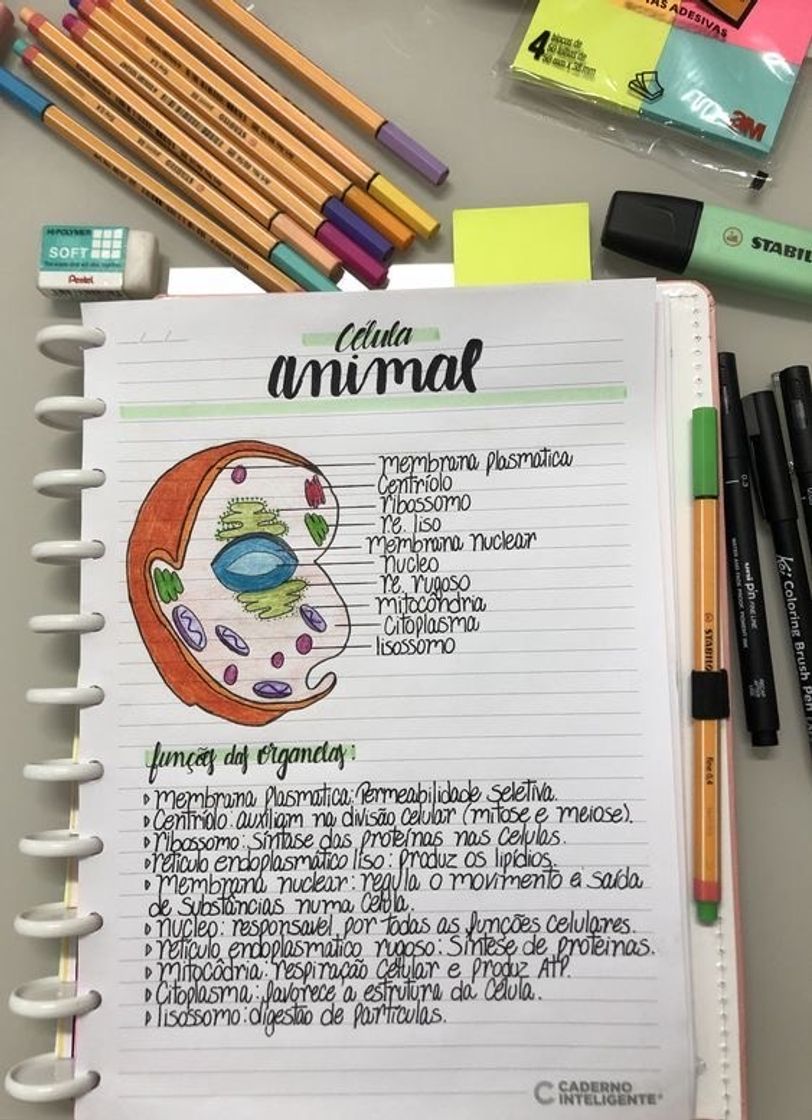 NOTAS ADESIVAS
4 blocos de
50 folhas de
38 mm x 50 mm
3M
HI-POLYMER
SOFT
Pentel
STABIL
Célula
animal
membrana plasmatica
Centríolo
ribossomo
re. liso
membrana nuclear
nucleo
re. rugoso
mitocôndria
Citoplasma
lisossomo
funções das organelas:
Membrana plasmatica: Permeabilidade seletiva.
Centríolo: auxiliam na divisão celular (mitose e meiose).
ribossomo: síntase das proteínas nas células.
retículo endoplasmático liso: produz os lipídios.
Membrana nuclear: regula o movimento e saída
de substâncias numa célula.
nucleo: responsavel por todas as funções celulares.
retículo endoplasmatico rugoso: síntese de proteinas.
mitocôdria: respiração celular e produz ATP.
Citoplasma: favorece a estrutura da célula.
lisossomo: digestão de partículas.
CADERNO
INTELIGENTE
STABILO
fine 0,4
0.3
uni pin FINE LINE
Koi Coloring Brush Pen